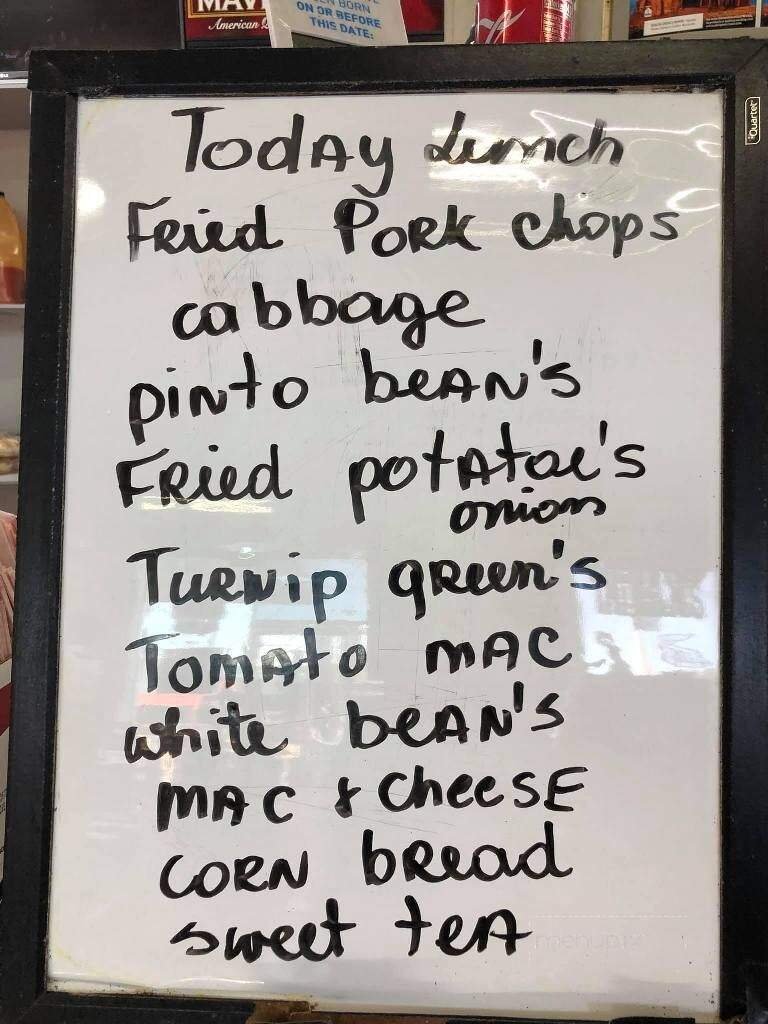 MAV
American
EN BORN
ON OR BEFORE
THIS DATE:
Quartet
Today Lunch
Fried Pork chops
cabbage
pinto beAN's
Fried potAtoe's
onions
Turnip green's
Tomato MAC
white beAN's
MAC & CheeSE
CORN bread
sweet teA
menupix